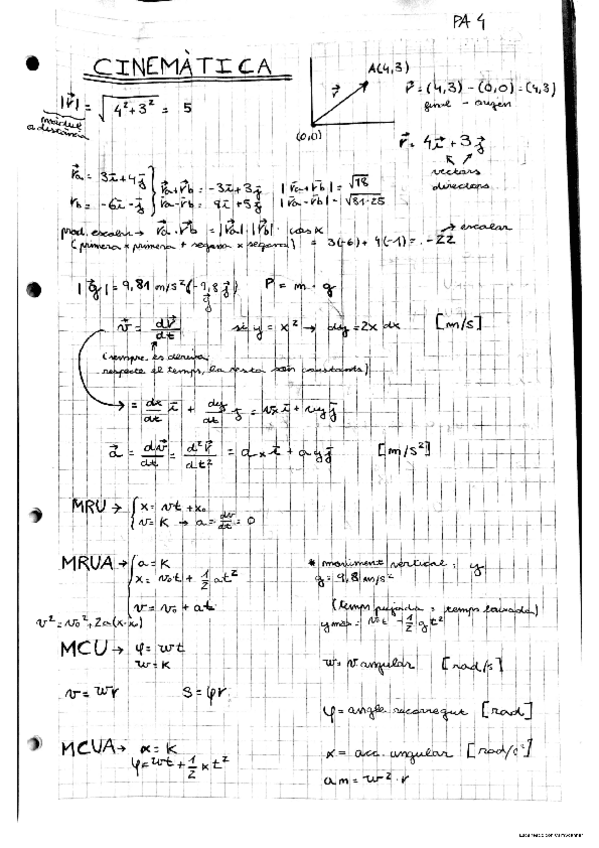 PA 4
CINEMÀTICA
A(4,3)
r⃗
(0,0)
r⃗ = (4,3) - (0,0) = (4,3)
final - origen
|r⃗| = √(4²+3²) = 5
mòdul
o distància
r⃗ = 4i⃗ + 3j⃗
vectors
directors
r⃗a = 3i⃗ + 4j⃗
r⃗b = -6i⃗ - j⃗
r⃗a + r⃗b = -3i⃗ + 3j⃗
r⃗a - r⃗b = 9i⃗ + 5j⃗
|r⃗a + r⃗b| = √18
|r⃗a - r⃗b| = √81·25
prod. escalar → r⃗a · r⃗b = |r⃗a| · |r⃗b| · cos α
(primera × primera + segona × segona) = 3(-6) + 4(-1) = -22 → escalar
|g⃗| = 9,81 m/s² (-9,8 j⃗) P = m · g
g⃗
v⃗ = dr⃗/dt si y = x² → dy = 2x dx [m/s]
(sempre es deriva
respecte el temps, la resta són constants)
→ = dx/dt i⃗ + dy/dt j⃗ = vx i⃗ + vy j⃗
a⃗ = dv⃗/dt = d²r⃗/dt² = ax i⃗ + ay j⃗ [m/s²]
MRU → x = vt + x₀
v = K → a = dv/dt = 0
MRUA → a = K
x = v₀t + 1/2 at²
v = v₀ + at
v² = v₀² + 2a(x-x₀)
* moviment vertical: y
g = 9,8 m/s²
(temps pujada = temps baixada)
y max = v₀t - 1/2 gt²
MCU → φ = wt
w = K
w = v angular [rad/s]
v = wr S = φr
φ = angle recorregut [rad]
MCUA → α = K
φ = wt + 1/2 αt²
α = acc. angular [rad/s²]
an = w² · r